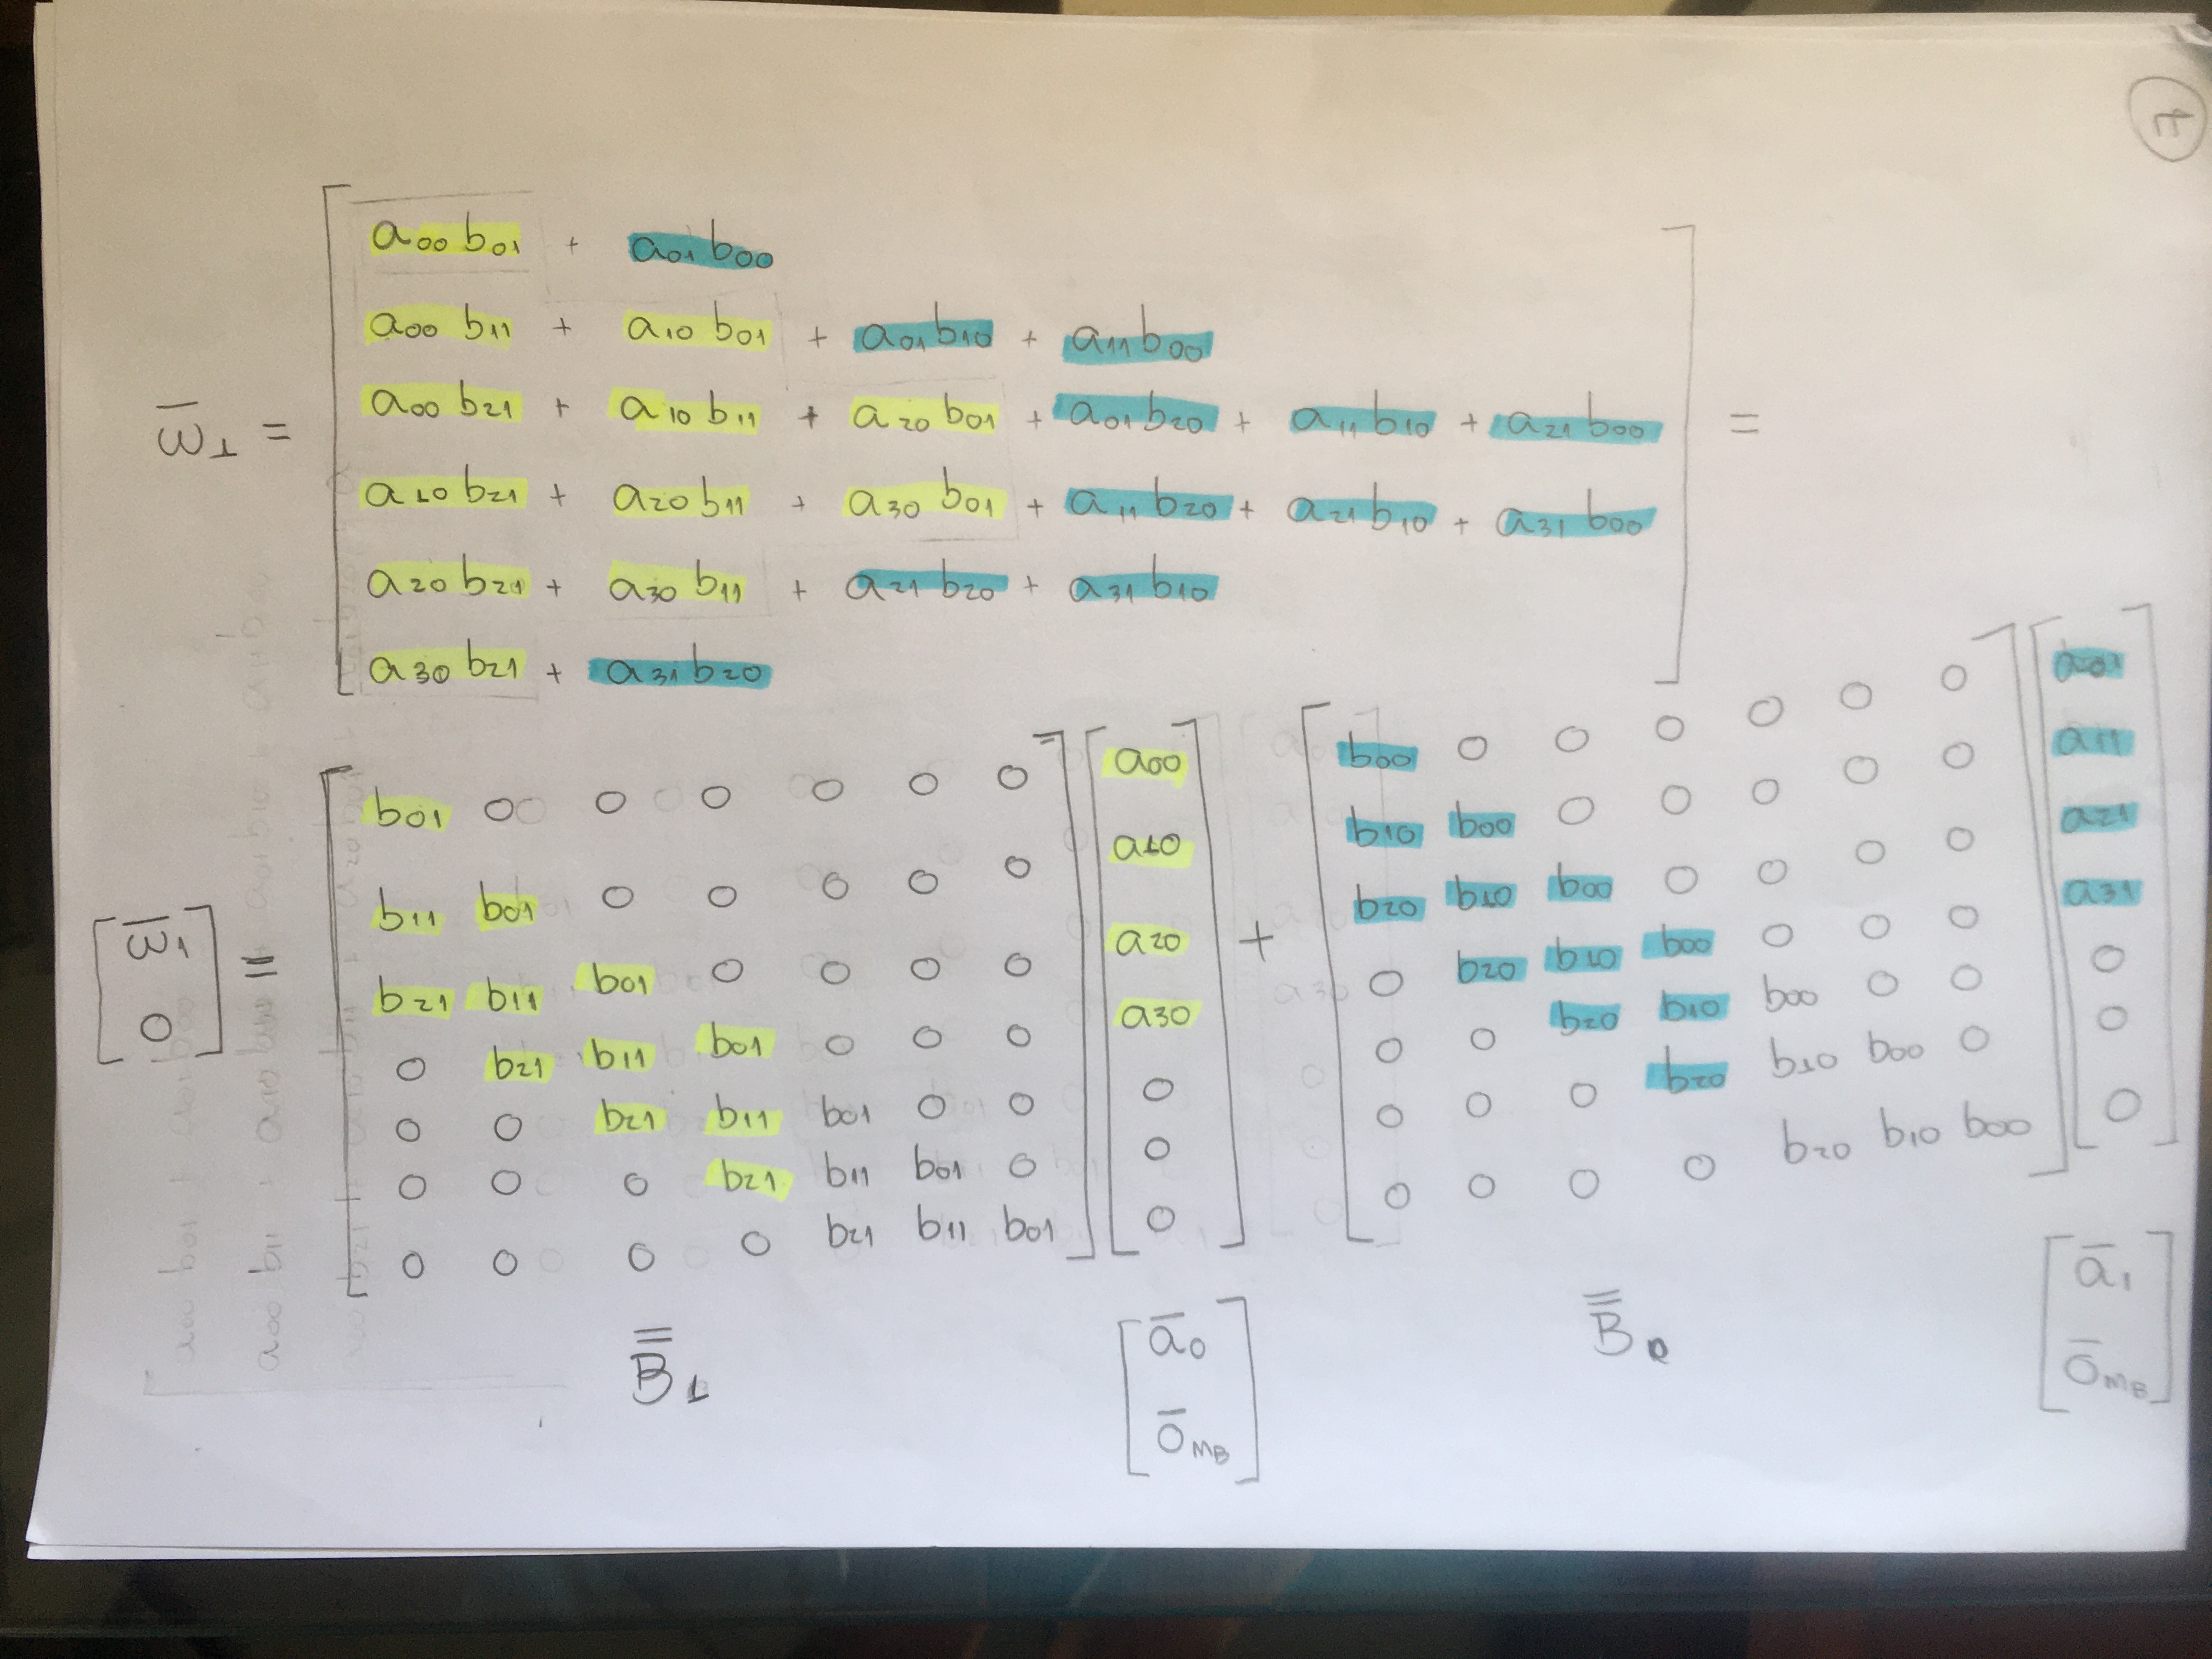 7
ω̄₁ =
a00 b01 + a01 b00
a00 b11 + a10 b01 + a01 b10 + a11 b00
a00 b21 + a10 b11 + a20 b01 + a01 b20 + a11 b10 + a21 b00 =
a10 b21 + a20 b11 + a30 b01 + a11 b20 + a21 b10 + a31 b00
a20 b21 + a30 b11 + a21 b20 + a31 b10
a30 b21 + a31 b20
[ω̄₁ 0] =
b01 0 0 0 0 0 0
b11 b01 0 0 0 0 0
b21 b11 b01 0 0 0 0
0 b21 b11 b01 0 0 0
0 0 b21 b11 b01 0 0
0 0 0 b21 b11 b01 0
0 0 0 0 b21 b11 b01
a00
a10
a20
a30
0
0
0
+
b00 0 0 0 0 0 0
b10 b00 0 0 0 0 0
b20 b10 b00 0 0 0 0
0 b20 b10 b00 0 0 0
0 0 b20 b10 b00 0 0
0 0 0 b20 b10 b00 0
0 0 0 0 b20 b10 b00
a01
a11
a21
a31
0
0
0
B₁
ā₀
0̄ MB
B₀
ā₁
0̄ MB